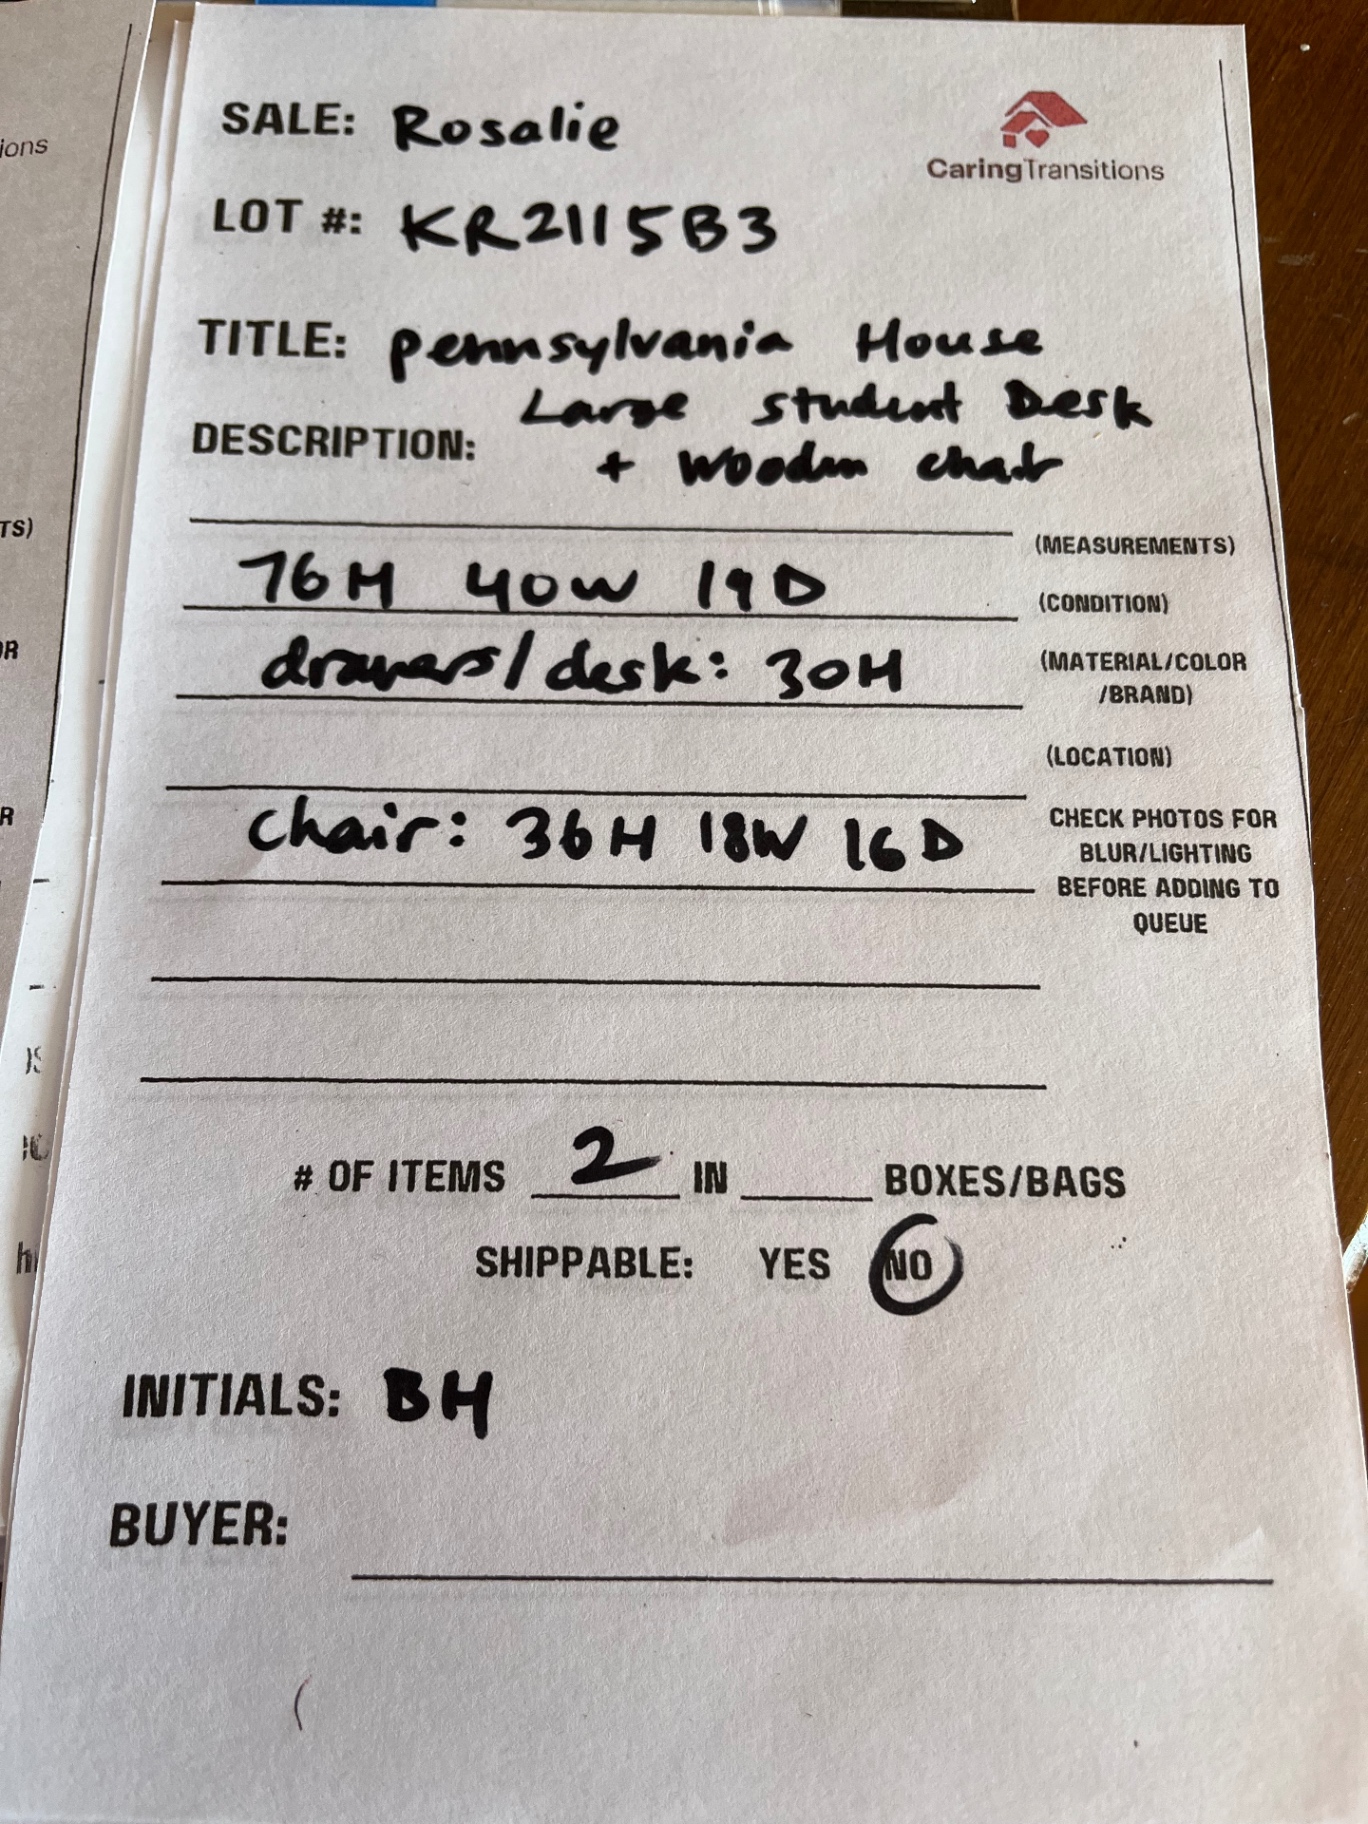 SALE: Rosalie
CaringTransitions
LOT #: KR2115B3
TITLE: Pennsylvania House
Large student Desk
DESCRIPTION: + wooden chair
(MEASUREMENTS)
76H 40W 19D
(CONDITION)
drawers/desk: 30H
(MATERIAL/COLOR
/BRAND)
(LOCATION)
chair: 36H 18W 16D
CHECK PHOTOS FOR
BLUR/LIGHTING
BEFORE ADDING TO
QUEUE
# OF ITEMS 2 IN BOXES/BAGS
SHIPPABLE: YES NO
INITIALS: BH
BUYER:
ions
TS)
OR
R